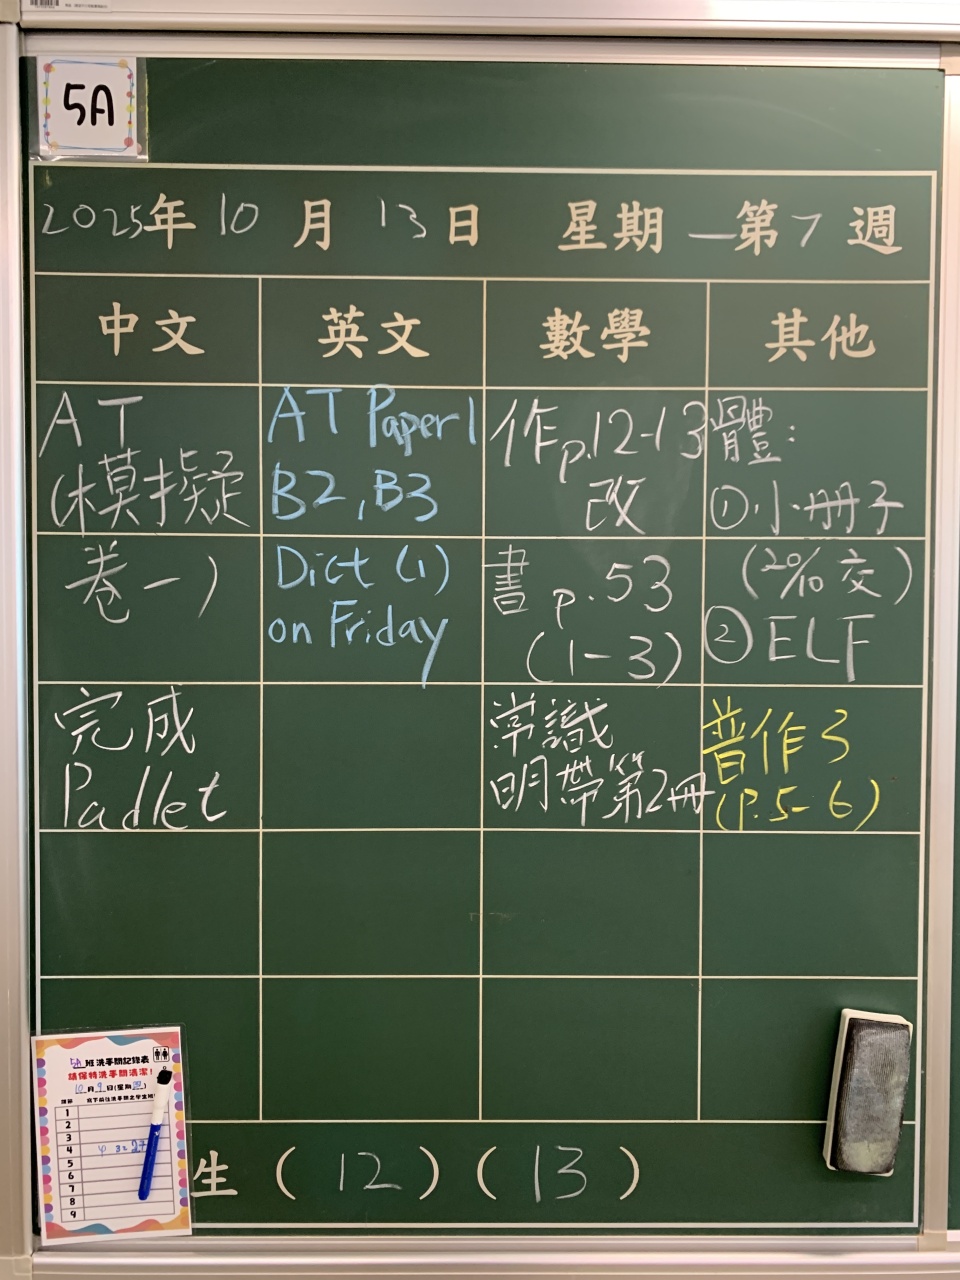 5A
2025年 10 月 13日 星期 一 第 7 週
中文 英文 數學 其他
AT
(模擬
卷一)
完成
Padlet
AT Paper 1
B2, B3
Dict (1)
on Friday
作p.12-13
改
書 p.53
(1-3)
常識
明帶第2冊
體:
①小冊子
(20/10 交)
②ELF
普作3
(p.5-6)
生 (12) (13)
5A班洗手間記錄表
請保持洗手間清潔!
10月9日(星期四)
1
2
3
4
5
6
7
8
9